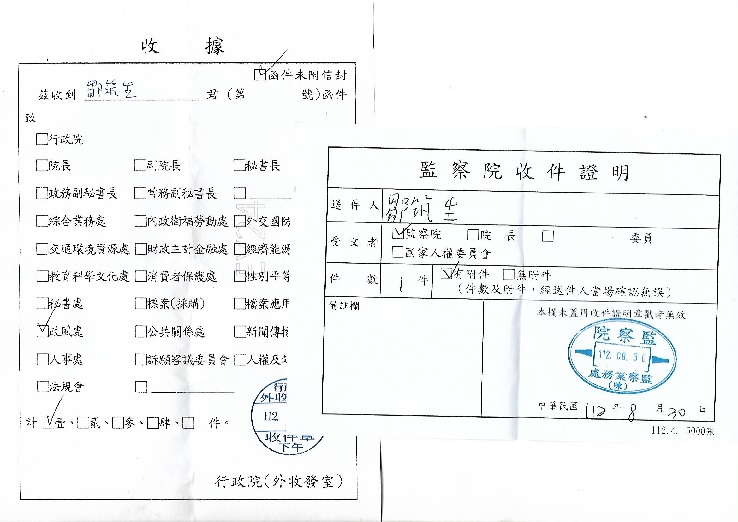 收據
函件未附信封
茲收到 鄒筑生 君(第 號)函件
致
行政院
院長 副院長 秘書長
政務副秘書長 常務副秘書長
綜合業務處 內政衛福勞動處 外交國防
交通環境資源處 財政主計金融處 經濟能源
教育科學文化處 消費者保護處 性別平等
秘書處 檔案(採購) 檔案應用
政風處 公共關係處 新聞傳播
人事處 訴願審議委員會 人權及
法規會
計 壹、貳、參、肆、 件。
外收
112
收件章
下午
行政院(外收發室)
監察院收件證明
送件人 鄒筑生
受文者 監察院 院長 委員
國家人權委員會
件數 1 件 有附件 無附件
(件數及附件,經送件人當場確認無誤)
備註欄
本欄未蓋用收件證明章戳者無效
監察院
112.08.30
監察業務處
(陳)
中華民國 112 年 8 月 30 日
112.2. 5000張